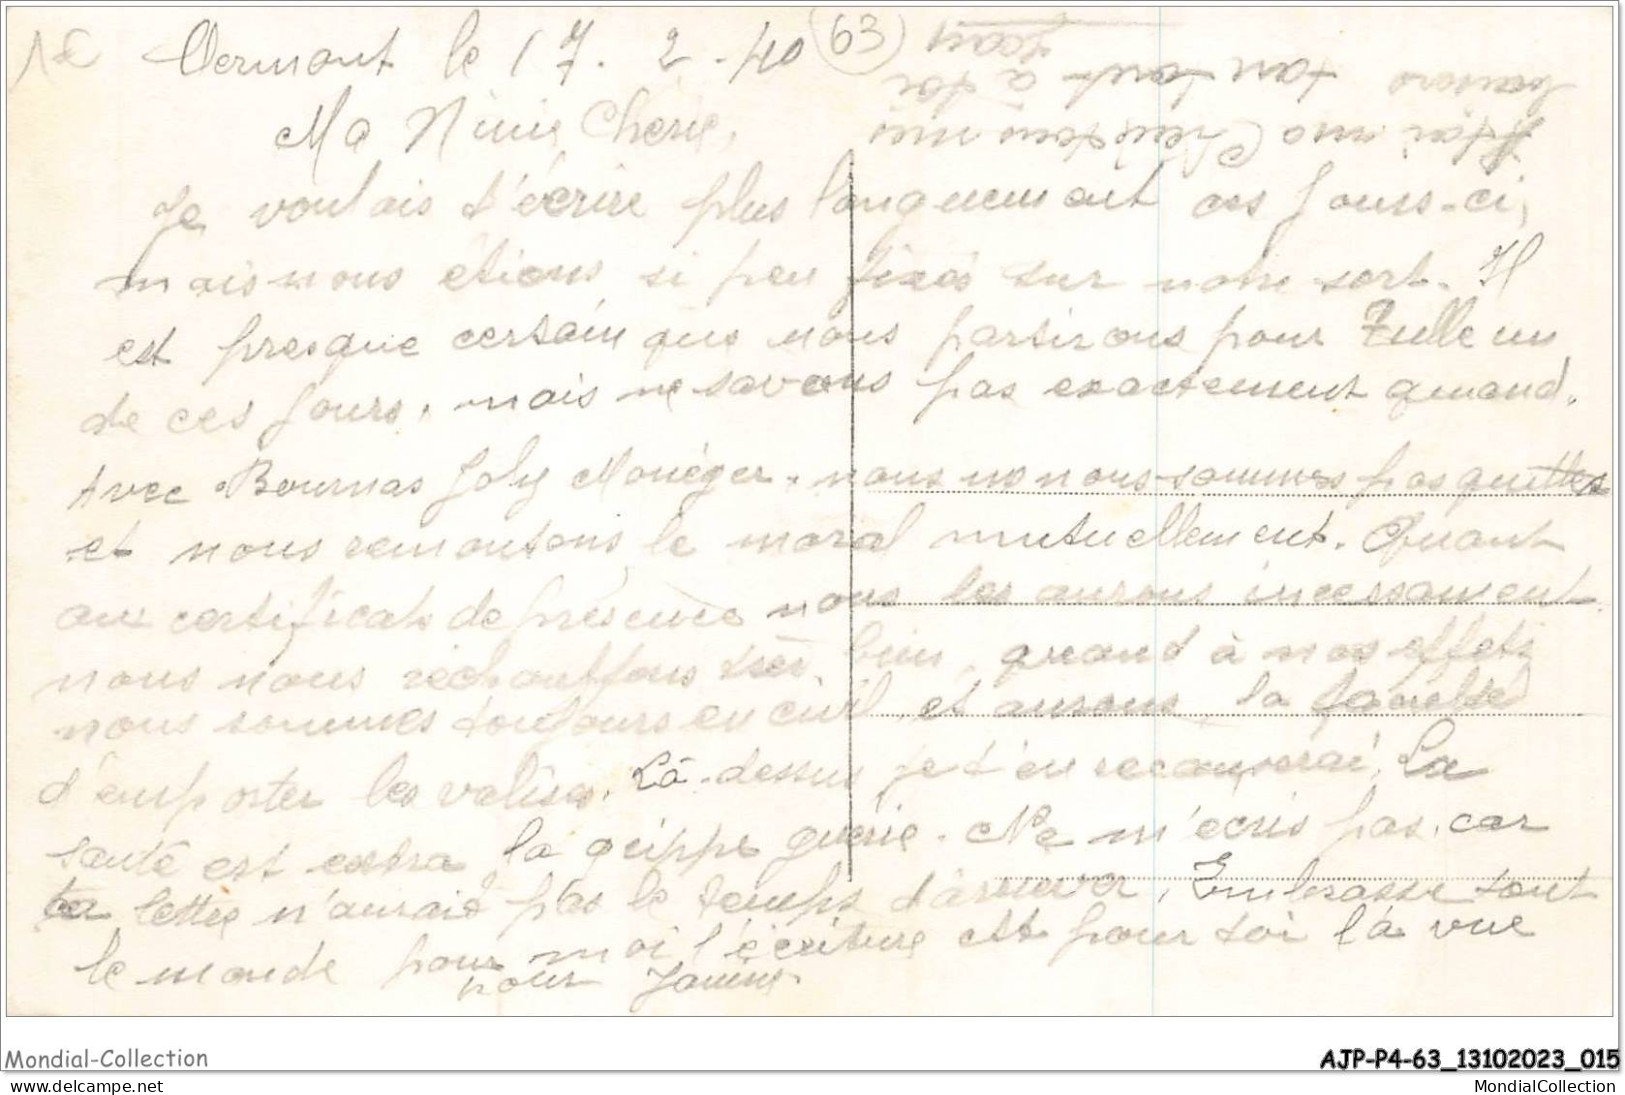 1€ Clermont le 17.2.40 63
Ma Ninie Chérie,
Je voulais t'écrire plus longuement ces jours-ci,
mais nous étions si peu fixés sur notre sort. Il
est presque certain que nous partirons pour Tulle un
de ces jours, mais ne savons pas exactement quand.
Avec Bournas Joly Monéger. nous ne nous sommes pas quittés
et nous remontons le moral mutuellement. Quant
aux certificats de présence nous les aurons incessament.
nous nous réchauffons très bien, quant à nos effets
nous sommes toujours en civil, et aurons la faculté
d'emporter les valises. Là-dessus je t'en recauserai. La
santé est extra la grippe guérie. Ne m'écris pas, car
ta lettre n'aurait pas le temps d'arriver. Embrasse tout
le monde pour moi l'écriture est pour toi la vue
pour Janine.
A toi ma Chérie tous mes
baisers ton tout à toi
Jean
Mondial-Collection
AJP-P4-63_13102023_015
www.delcampe.net
MondialCollection